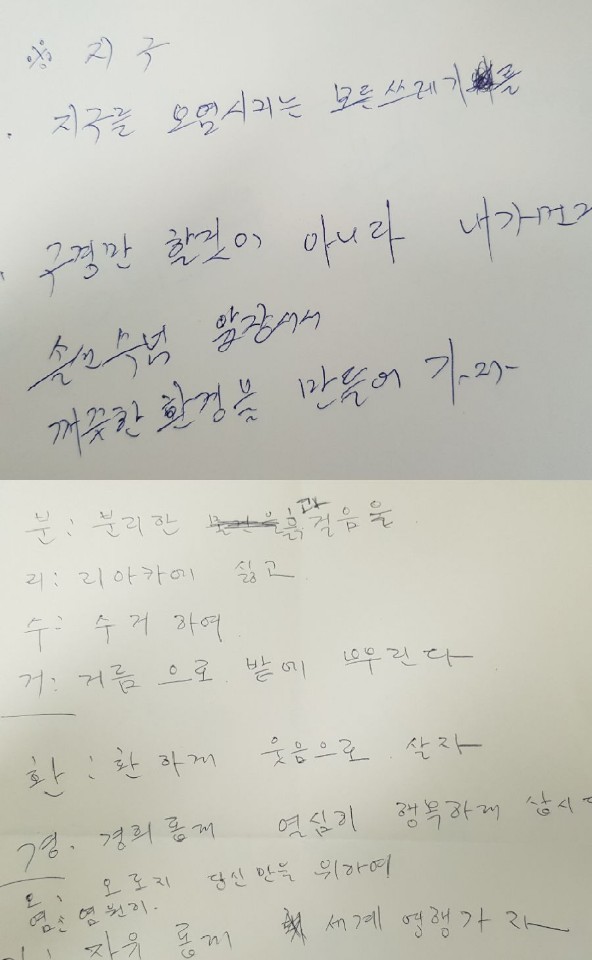 ※ 지구
지구를 오염시키는 모든쓰레기를
구경만 할것이 아니라 내가먼저
솔선수범 앞장서서
깨끗한 환경을 만들어 가리라
분: 분리한 흙과 걸음을
리: 리아카에 싫고
수: 수거 하여
거: 거름 으로 밭에 뿌린다
환: 환 하게 웃음으로 살자
경. 경희롭게 열심히 행복하게 삽시다
오: 오로지 당신만을 위하여
염: 염원히.
자유 롭게 세계 여행가자